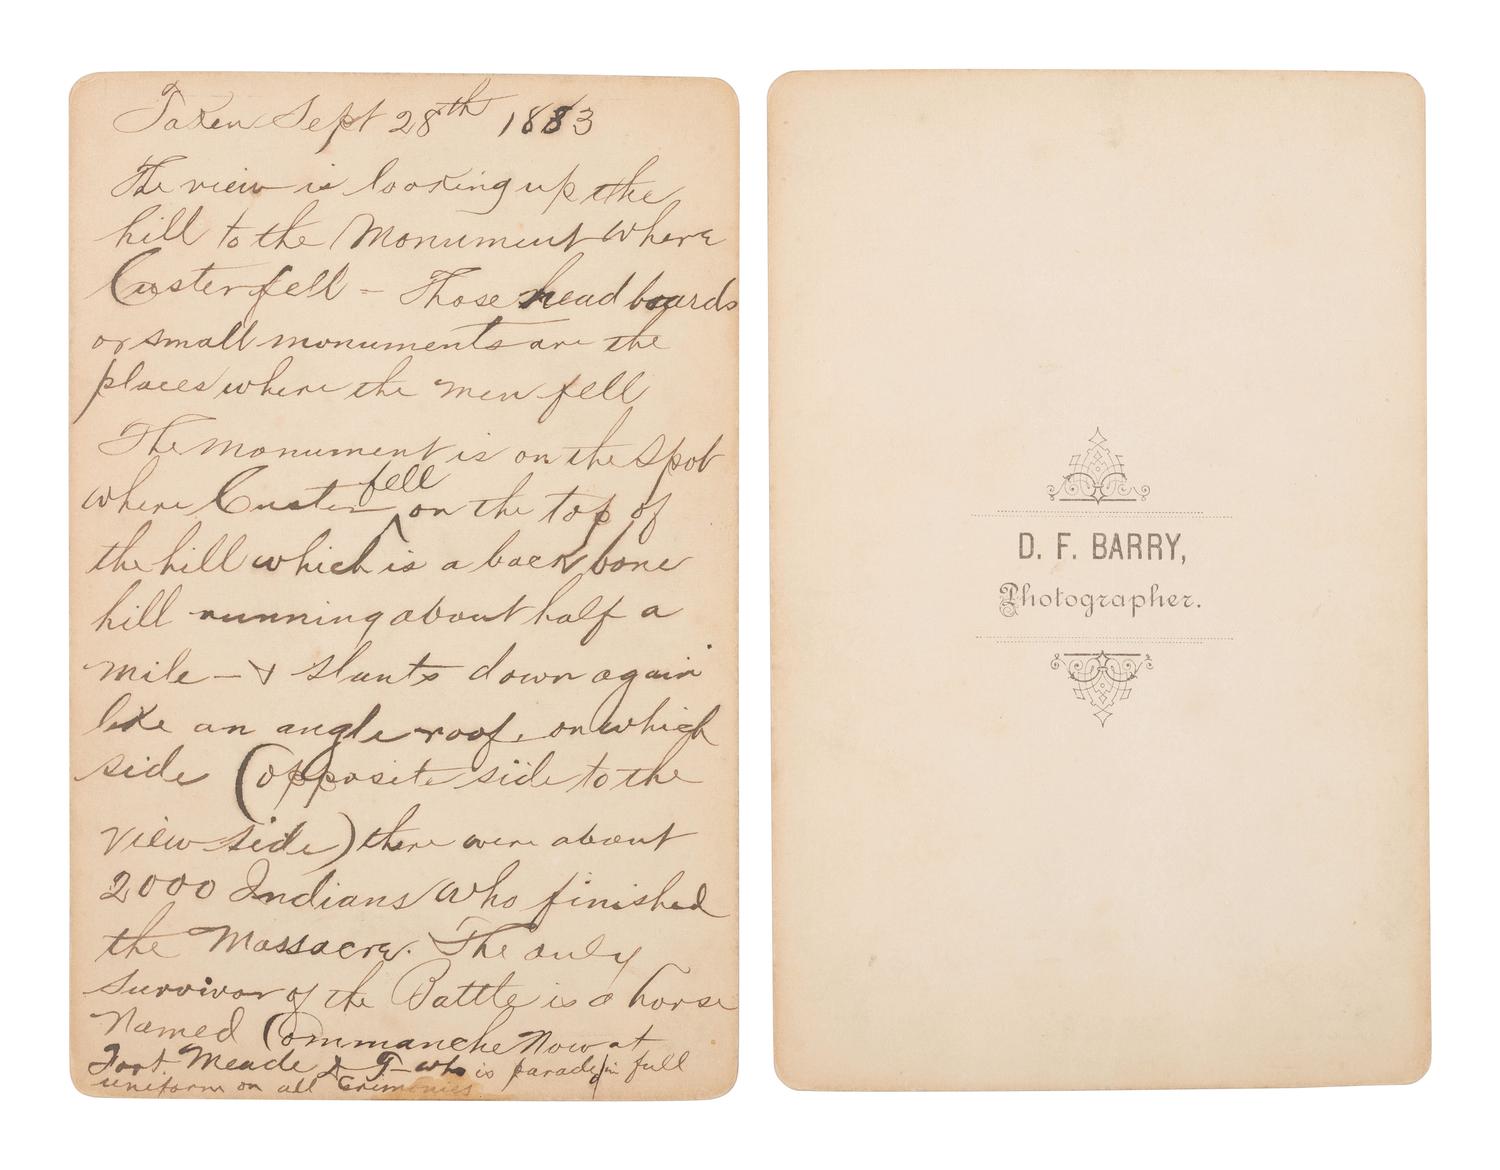 Taken Sept 28th 1883
The view is looking up the
hill to the Monument where
Custer fell - Those head boards
or small monuments are the
places where the men fell
The monument is on the spot
where Custer fell on the top of
the hill which is a back bone
hill running about half a
mile - & slants down again
like an angle roof. on which
side (opposite side to the
view side) there were about
2000 Indians who finished
the Massacre. The only
survivor of the Battle is a horse
Named Commanche Now at
Fort Meade D T - who is parade in full
uniform on all Cremonies
D. F. BARRY,
Photographer.